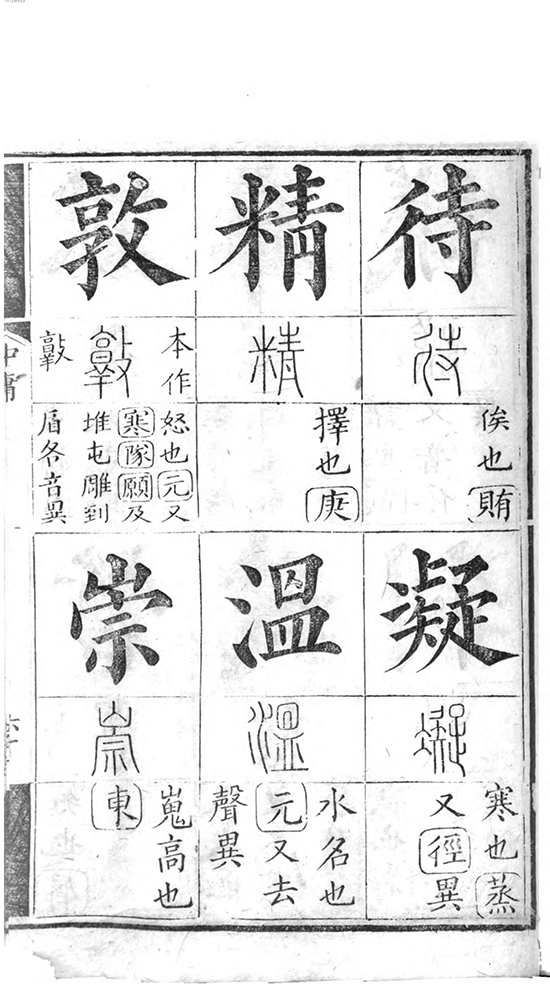 待
待
俟也賄
精
精
擇也庚
敦
本作
怒也元又
寒隊願及
堆屯雕到
盾各音異
凝
凝
寒也蒸
又徑異
溫
溫
水名也
元又去
聲異
崇
崇
嵬高也
東
中庸